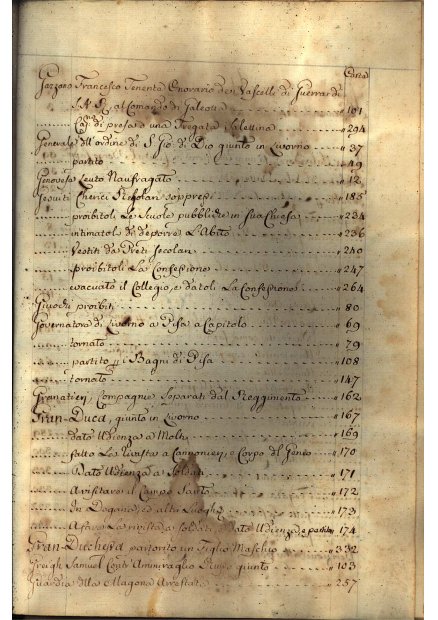 Carta
Gazzano Francesco Tenente Onorario de Vascelli di Guerra di
S.A.R. al Comando di Galeotta " 101
Cap. di presa d'una Fregata Salettina " 294
Generale dll'ordine di S. Gio di Dio giunto in Livorno " 37
partito " 49
Genovese Leuto Naufragato " 12
Jesuiti Cherici Regolari soppressi " 185
proibitoli Le Scuole pubbliche in sua Chiesa " 234
intimatoli di deporre L'Abito " 236
Vestiti da Preti Secolari " 240
proibitoli La Confessione " 247
evacuato il Collegio, e datoli La Confessione " 264
Giuochi proibiti " 80
Governatore di Livorno a Pisa a Capitolo " 69
tornato " 79
partito p i Bagni di Pisa " 108
tornato " 147
Granatieri, Compagnie separati dal Reggimento " 162
Gran-Duca, giunto in Livorno " 167
dato Udienza a Molti " 169
fatto La Rivista a Cannonieri, e Corpo del Genio " 170
Dato Udienza a Soldati " 171
Avisitare il Campo Santo " 172
In Dogana, ed altri Luoghi " 173
La rivista a Soldati, e dato Udienza e partito " 174
Gran-Duchessa partorito un Figlio Maschio " 332
Greigh Samuel Cont. Ammiraglio Russo giunto " 103
Guardia dlla Arrestati " 257